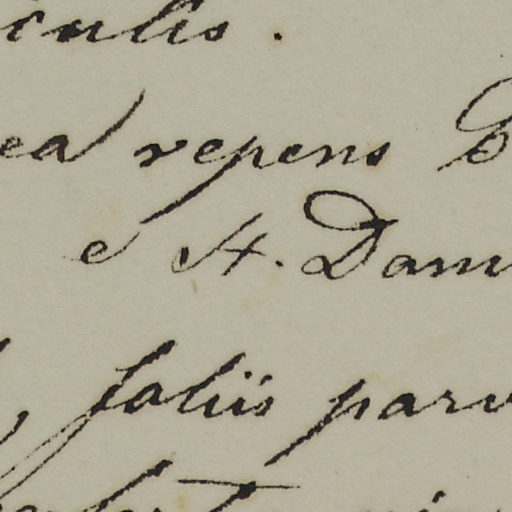 culis.
ea repens B
e St. Dom
foliis parv